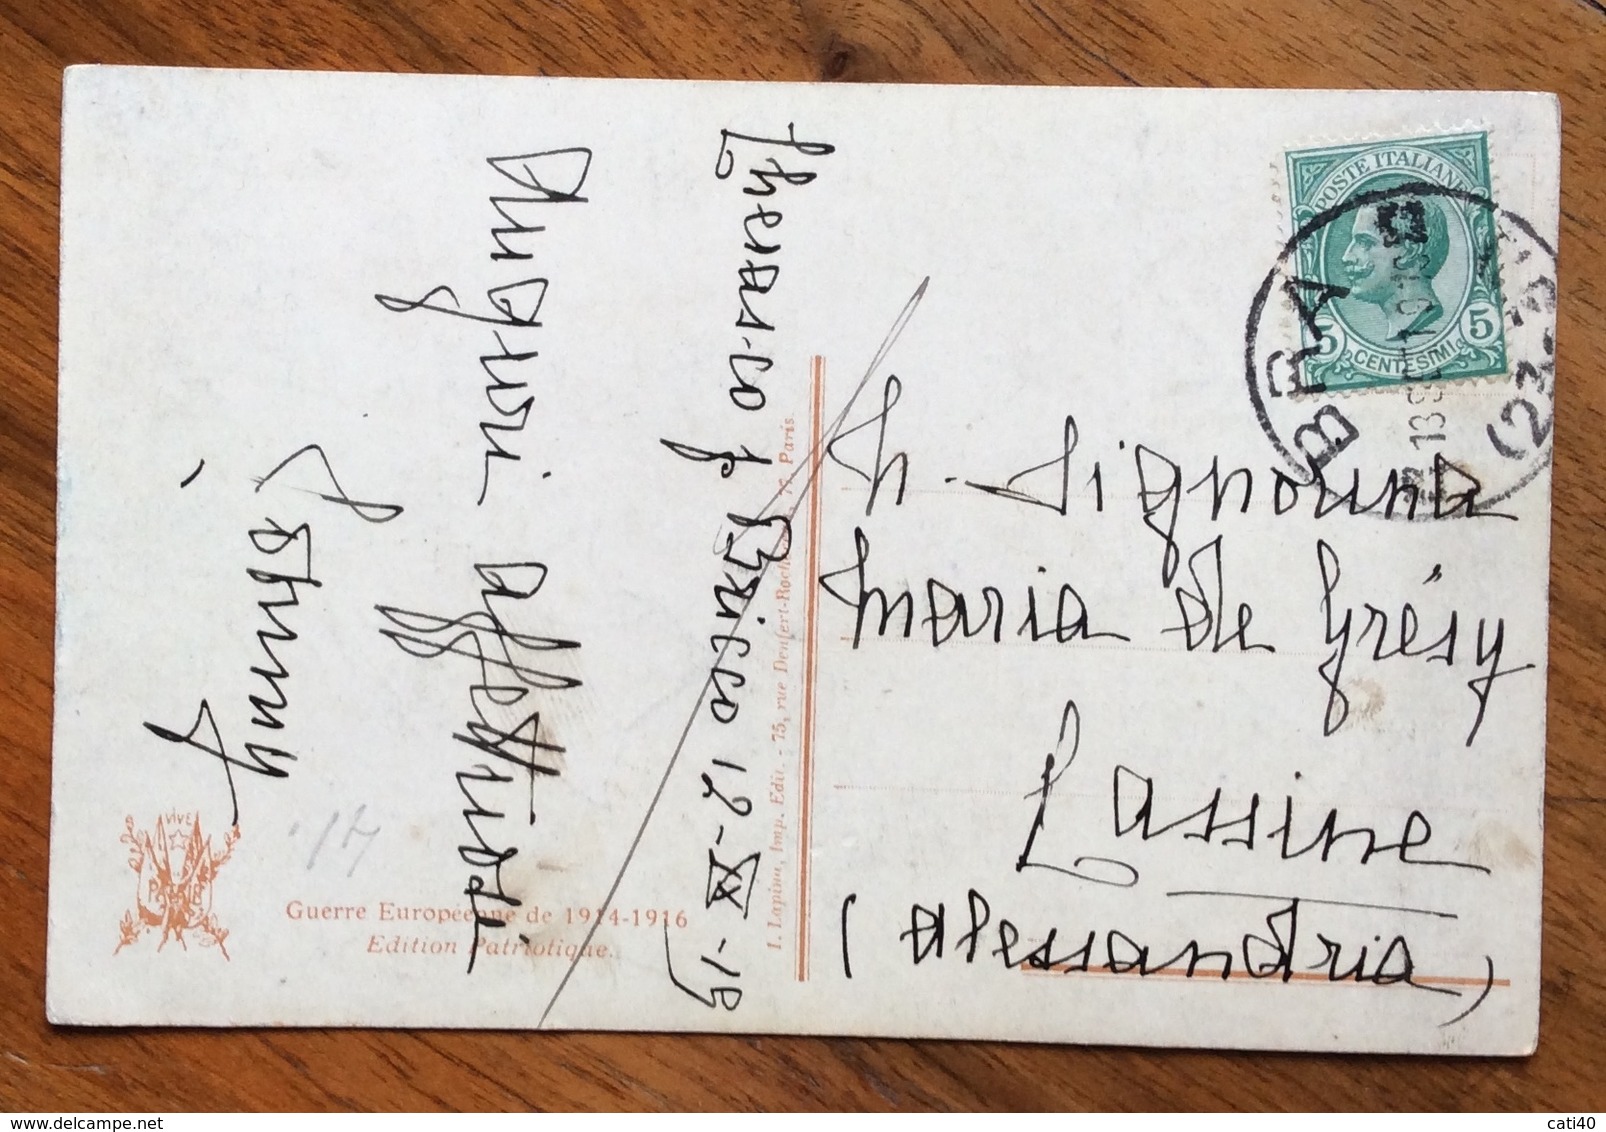 Cherasco p. Bricco 12-IX-19
Auguri affettuosi
Fanny
N. Signorina
Maria de Grésy
Lassine
(Alessandria)
POSTE ITALIANE
5 5
CENTESIMI
BRA
(23-
VIVE
PATRIE
Guerre Européenne de 1914-1916
Edition Patriotique.
I. Lapina, Imp. Edit. - 75, rue Denfert-Rochereau, 75 Paris.
17
cati40